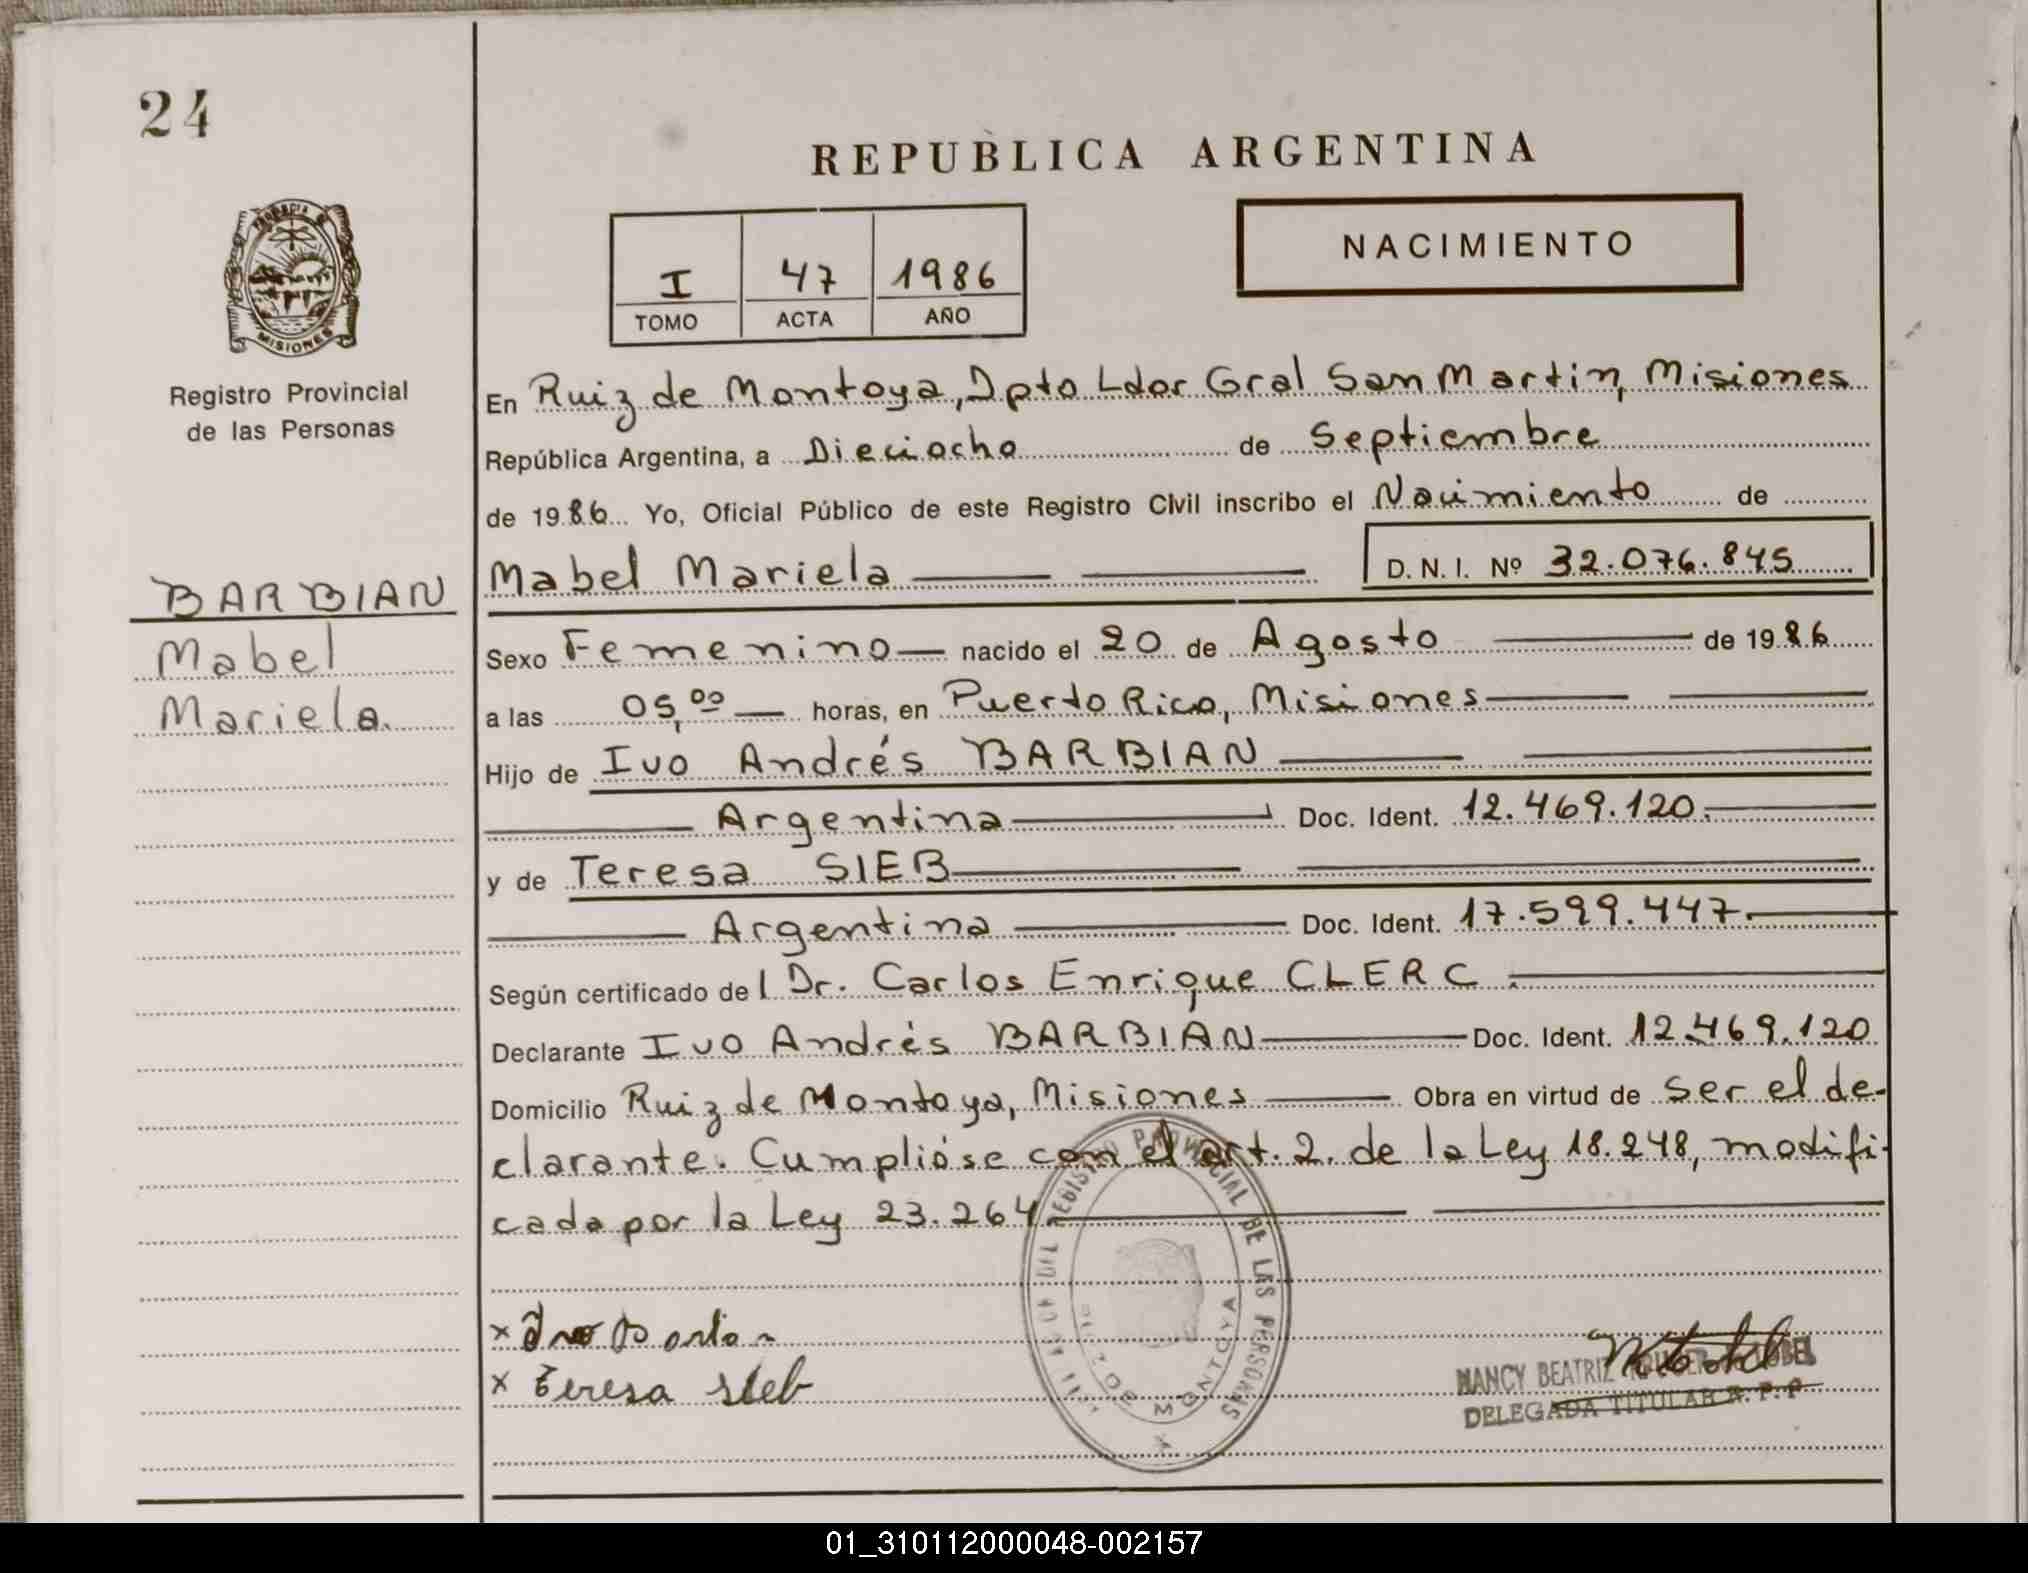 24
REPUBLICA ARGENTINA
PROVINCIA DE
MISIONES
Registro Provincial
de las Personas
I 47 1986
TOMO ACTA AÑO
NACIMIENTO
En Ruiz de Montoya, Dpto Ldor Gral San Martin, Misiones
República Argentina, a Dieciocho de Septiembre
de 1986 Yo, Oficial Público de este Registro Civil inscribo el Nacimiento de
Mabel Mariela D. N. I. Nº 32.076.845
BARBIAN
Mabel
Mariela.
Sexo Femenino nacido el 20 de Agosto de 1986
a las 05,00 horas, en Puerto Rico, Misiones
Hijo de Ivo Andrés BARBIAN
Argentina Doc. Ident. 12.469.120.
y de Teresa SIEB
Argentina Doc. Ident. 17.599.447.
Según certificado del Dr. Carlos Enrique CLERC.
Declarante Ivo Andrés BARBIAN Doc. Ident. 12.469.120
Domicilio Ruiz de Montoya, Misiones Obra en virtud de ser el de-
clarante. Cumplióse con el art. 2. de la Ley 18.248, modifi-
cada por la Ley 23.264
DEL REGISTRO PROVINCIAL DE LAS PERSONAS
RUIZ DE MONTOYA
x Ivo Barbian
x Teresa Sieb
NANCY BEATRIZ
DELEGADA TITULAR R. P. P.
01_310112000048-002157